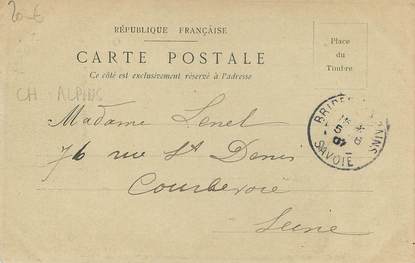 20 €
RÉPUBLIQUE FRANÇAISE
CARTE POSTALE
Ce côté est exclusivement réservé à l'adresse
Place
du
Timbre
CH. ALPINS
Madame Lenel
76 rue St Denis
Courbevoie
Seine
BRIDES
BAINS
SAVOIE